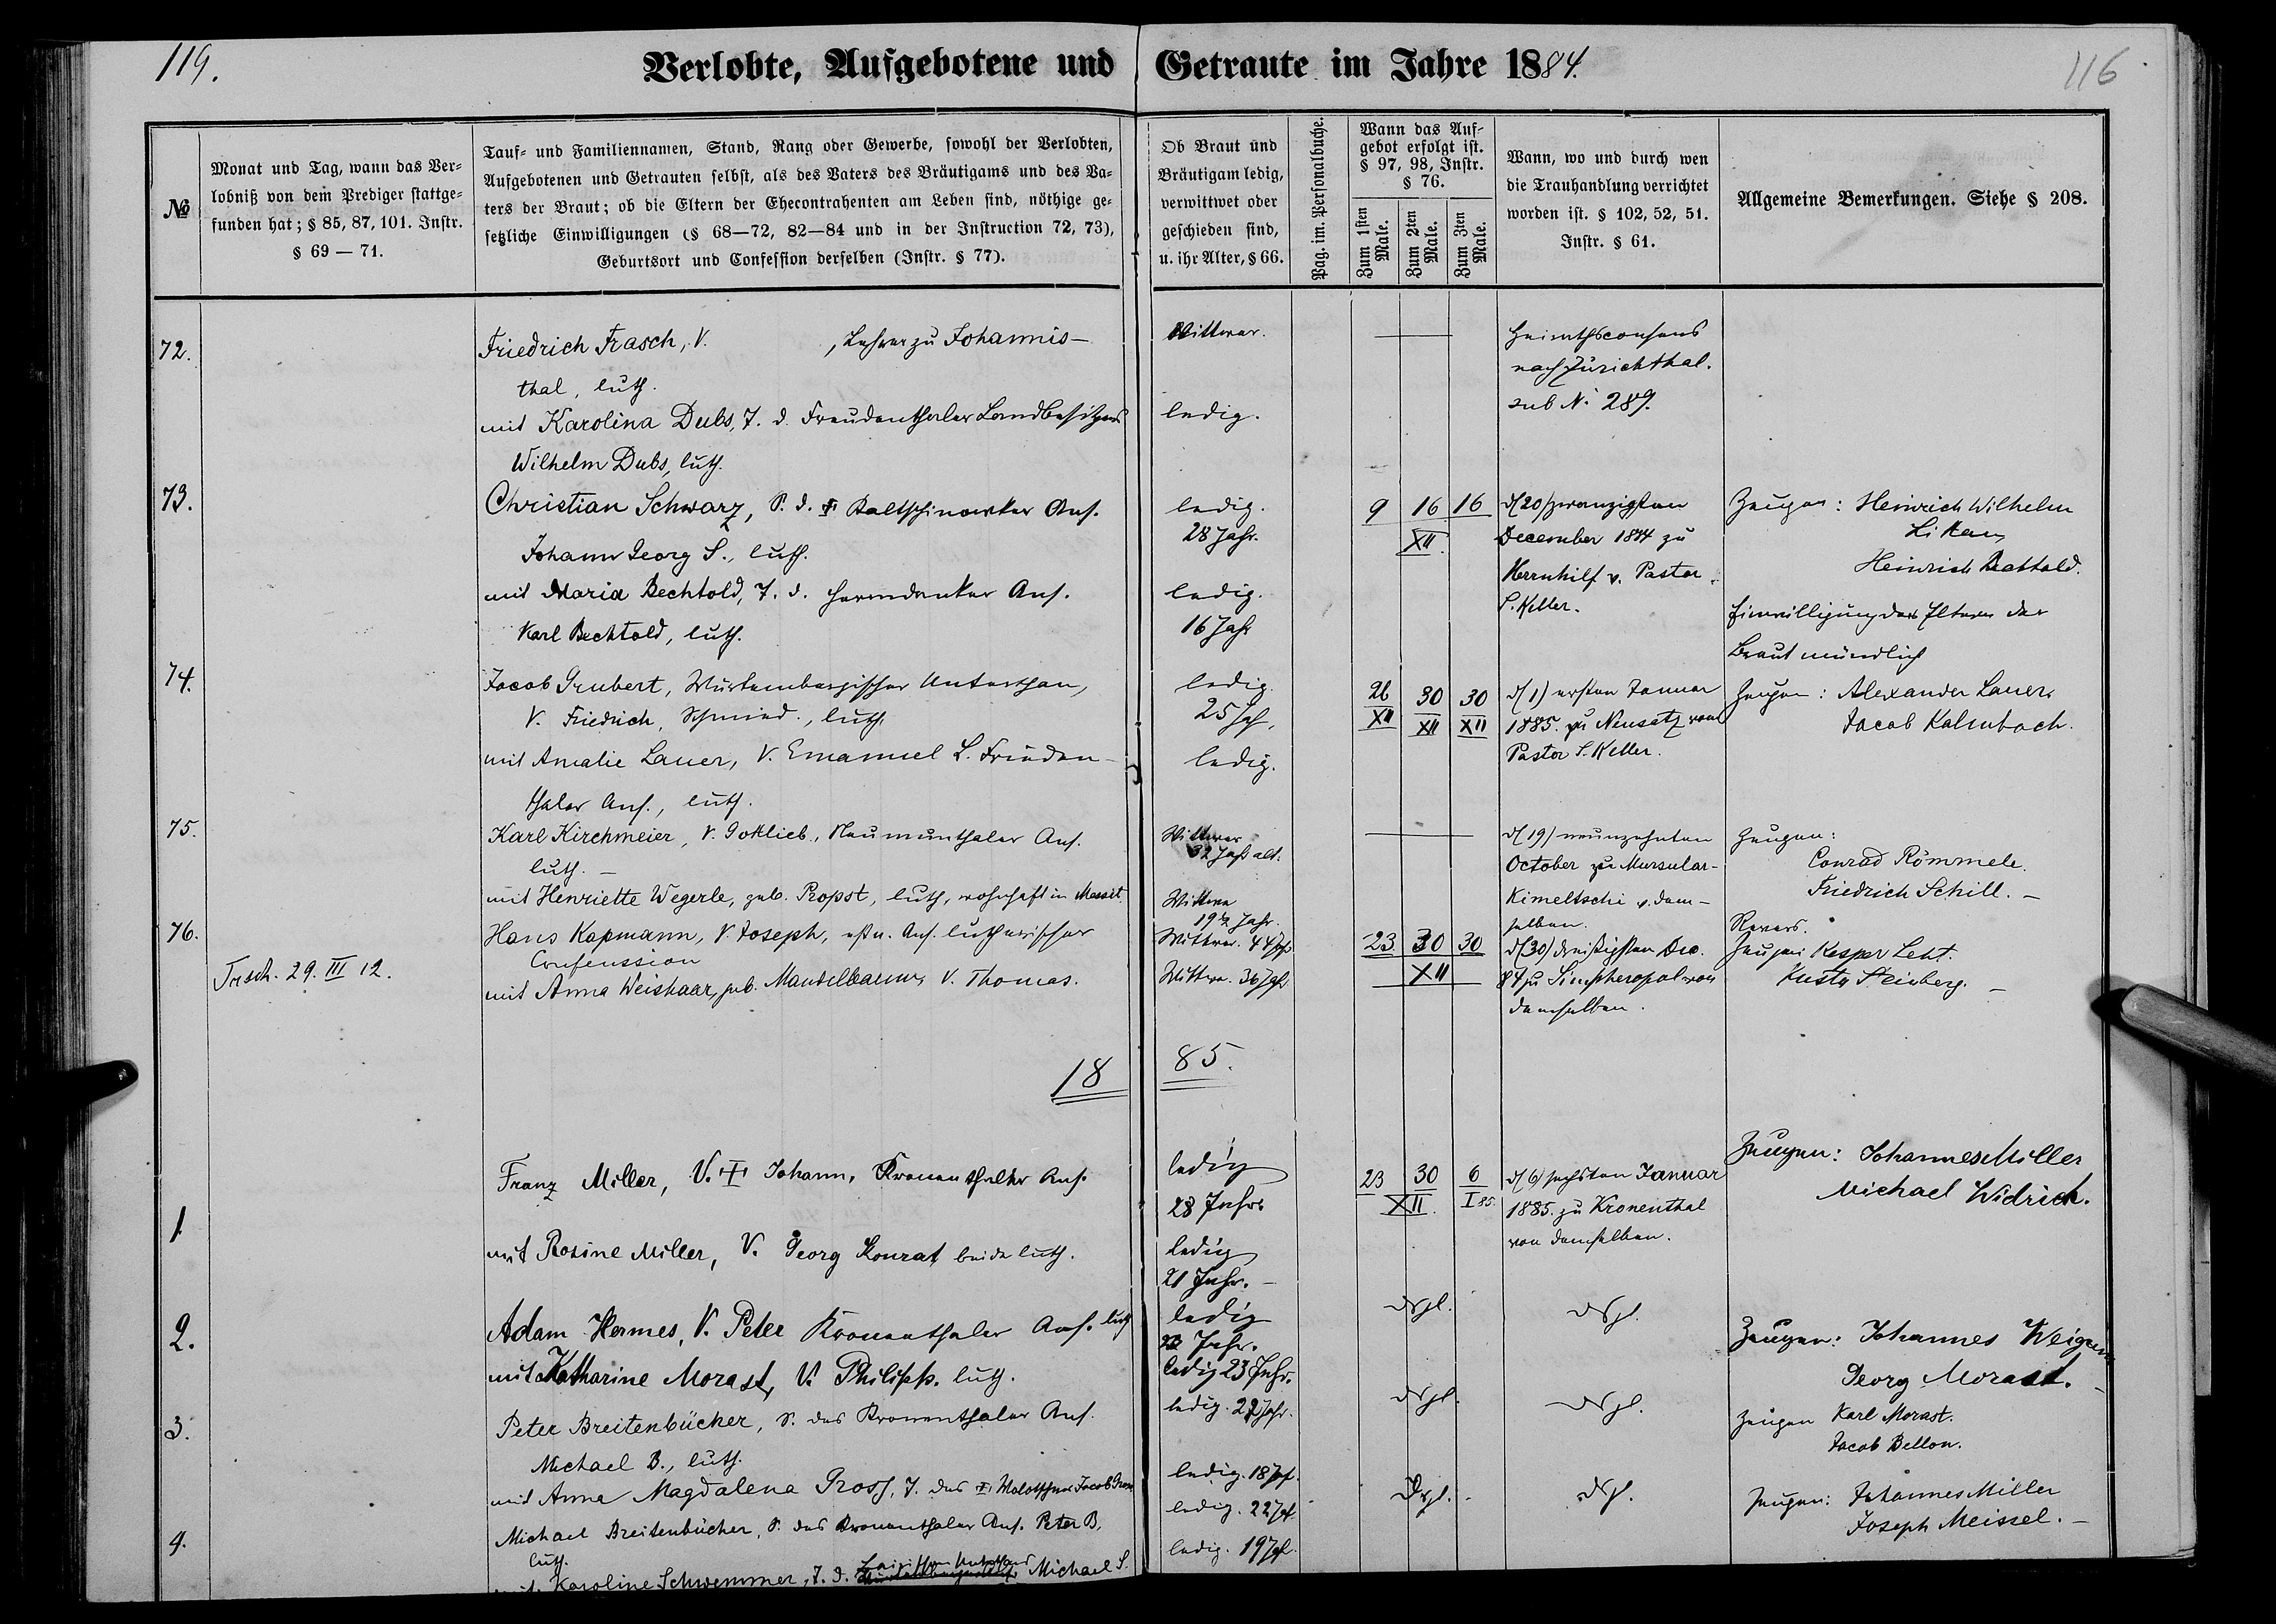 119.
Verlobte, Aufgebotene und Getraute im Jahre 1884.
116
№
Monat und Tag, wann das Ver-
lobniß von dem Prediger stattge-
funden hat; § 85, 87, 101. Instr.
§ 69 — 71.
Tauf- und Familiennamen, Stand, Rang oder Gewerbe, sowohl der Verlobten,
Aufgebotenen und Getrauten selbst, als des Vaters des Bräutigams und des Va-
ters der Braut; ob die Eltern der Ehecontrahenten am Leben sind, nöthige ge-
setzliche Einwilligungen (§ 68—72, 82—84 und in der Instruction 72, 73),
Geburtsort und Confession derselben (Instr. § 77).
Ob Braut und
Bräutigam ledig,
verwittwet oder
geschieden sind,
u. ihr Alter, § 66.
Pag. im. Personalbuche.
Wann das Auf-
gebot erfolgt ist.
§ 97, 98, Instr.
§ 76.
Zum 1sten Male.
Zum 2ten Male.
Zum 3ten Male.
Wann, wo und durch wen
die Trauhandlung verrichtet
worden ist. § 102, 52, 51.
Instr. § 61.
Allgemeine Bemerkungen. Siehe § 208.
72.
Friedrich Frasch, V. , Lehrer zu Johannis-
thal, luth.
mit Karolina Dubs, T. d. Freudenthaler Landbesitzers
Wilhelm Dubs, luth.
Wittwer.
ledig.
Heirathsconsens
nach Zürichthal.
sub N. 289.
73.
Christian Schwarz, S. d. Ans.
Johann Georg S., luth.
mit Maria Bechtold, T. d. Ans.
Karl Bechtold, luth.
ledig.
28 Jahr.
ledig.
16 Jahr
9 16 16
XII.
d (20) zwanzigsten
December 1884 zu
Herrnhilf v. Pastor
S. Keller.
Zeugen: Heinrich Wilhelm
Heinrich
Einwilligung der Eltern der
Braut mündlich
74.
Jacob Grubert, Würtembergischer Unterthan,
V. Friedrich, Schmied, luth.
mit Amalie Lauer, V. Emanuel L. Frieden-
thaler Ans., luth.
ledig.
25 Jahr,
ledig.
26 30 30
XII XII XII
d (1) ersten Januar
1885. zu Neusatz von
Pastor S. Keller.
Zeugen: Alexander Lauer.
Jacob Kalmbach.
75.
Karl Kirchmeier, V. Gottlieb, Ans.
luth. —
mit Henriette Wegerle, geb. Propst, luth, wohnhaft in
Wittwer
32 Jahr alt.
Wittwe
19½ Jahr.
d (19) neunzehnten
October zu Mursular-
Kimeltschi v. dem-
selben.
Zeugen:
Conrad Römmele.
Friedrich Schill. —
76.
Trsch. 29. III 12.
Hans Kapmann, V. Joseph, estn. Ans. lutherischer
mit Anna Weishaar, geb. Mandelbaum, V. Thomas.
Wittwer. 44 Jahr
Wittwe. 36 Jahr
23 30 30
XII
d (30) dreißigsten Dec.
84 zu Simpheropol von
demselben.
Revers.
Zeugen Kasper Leht.
Kusta Steinberg. —
18 85.
1.
Franz Miller, V. † Johann, Kronenthaler Ans.
mit Rosine Miller, V. Georg Konrat beide luth.
ledig
28 Jahr.
ledig
21 Jahr. —
23 30 6
XII. I 85.
d (6) sechsten Januar
1885. zu Kronenthal
von demselben.
Zeugen: Johannes Miller
Michael Widrich.
2.
Adam Hermes, V. Peter Kronenthaler Ans. luth
mit Katharine Morast, V. Philipp. luth.
ledig
23 Jahr.
ledig 23 Jahr.
dsgl.
dsgl.
Zeugen: Johannes
Georg Morast. —
3.
Peter Breitenbücher, S. des Kronenthaler Ans.
Michael B., luth.
mit Anna Magdalena Gross, T. des † Jacob Gross
ledig. 22 Jahr.
ledig. 18 Jahr.
dsgl.
dsgl.
Zeugen Karl Morast.
Jacob Bellon.
4.
Michael Breitenbücher, S. des Kronenthaler Ans. Peter B.
luth.
mit Karoline Schwemmer, T. d. Michael S.
ledig. 22 Jahr
ledig. 19 Jahr.
Dsgl.
dsgl.
Zeugen: Johannes Miller
Joseph Meissel. —